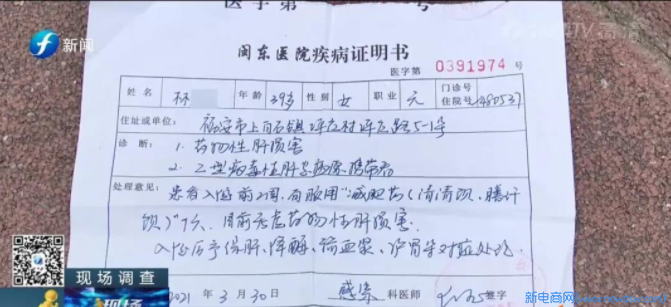 医字第 号
新闻
TV 高清
闽东医院疾病证明书
医字第 0391974 号
姓名 林 年龄 39岁 性别 女 职业 无 门诊号 住院号 1480537
住址或单位: 福安市上白石镇 5-1号
诊断: 1. 药物性肝损害
2. 乙型病毒性肝炎病原携带者
处理意见: 患者入院前2周,有服用"减肥药(清清 、
)" 目前考虑药物性肝损害。
入院后予保肝、降酶、输血浆、护胃等对症处理
2021年 3月 30日 感染 科医师 签字
现场调查
现场
新电商网
www.xindianshang.com